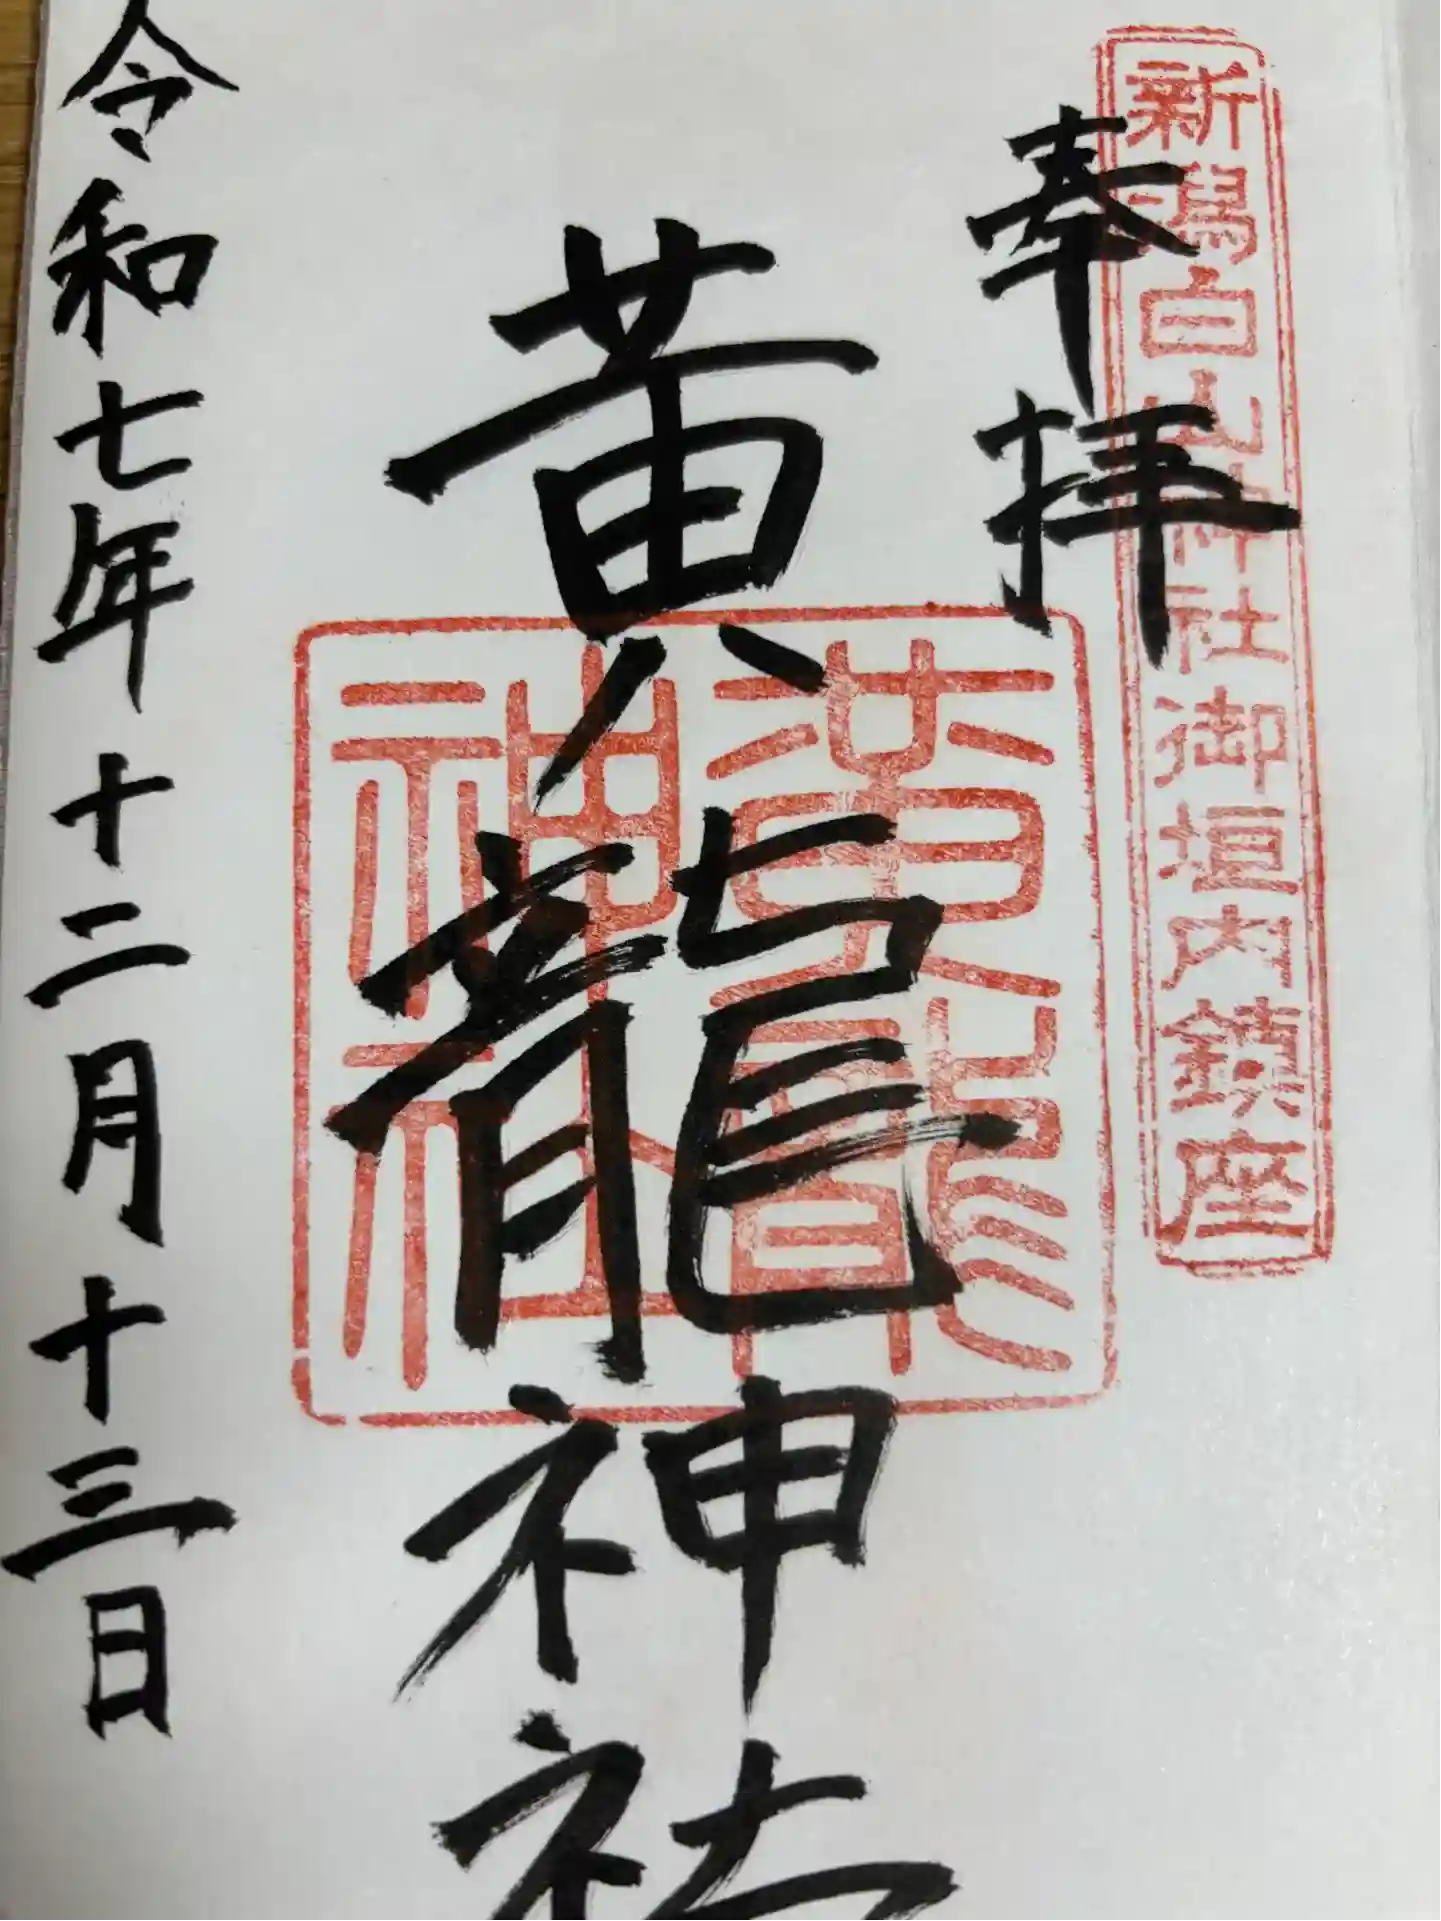 新潟白山神社御垣内鎮座
奉拝
黄龍神社
黄龍
神社
令和七年十二月十三日